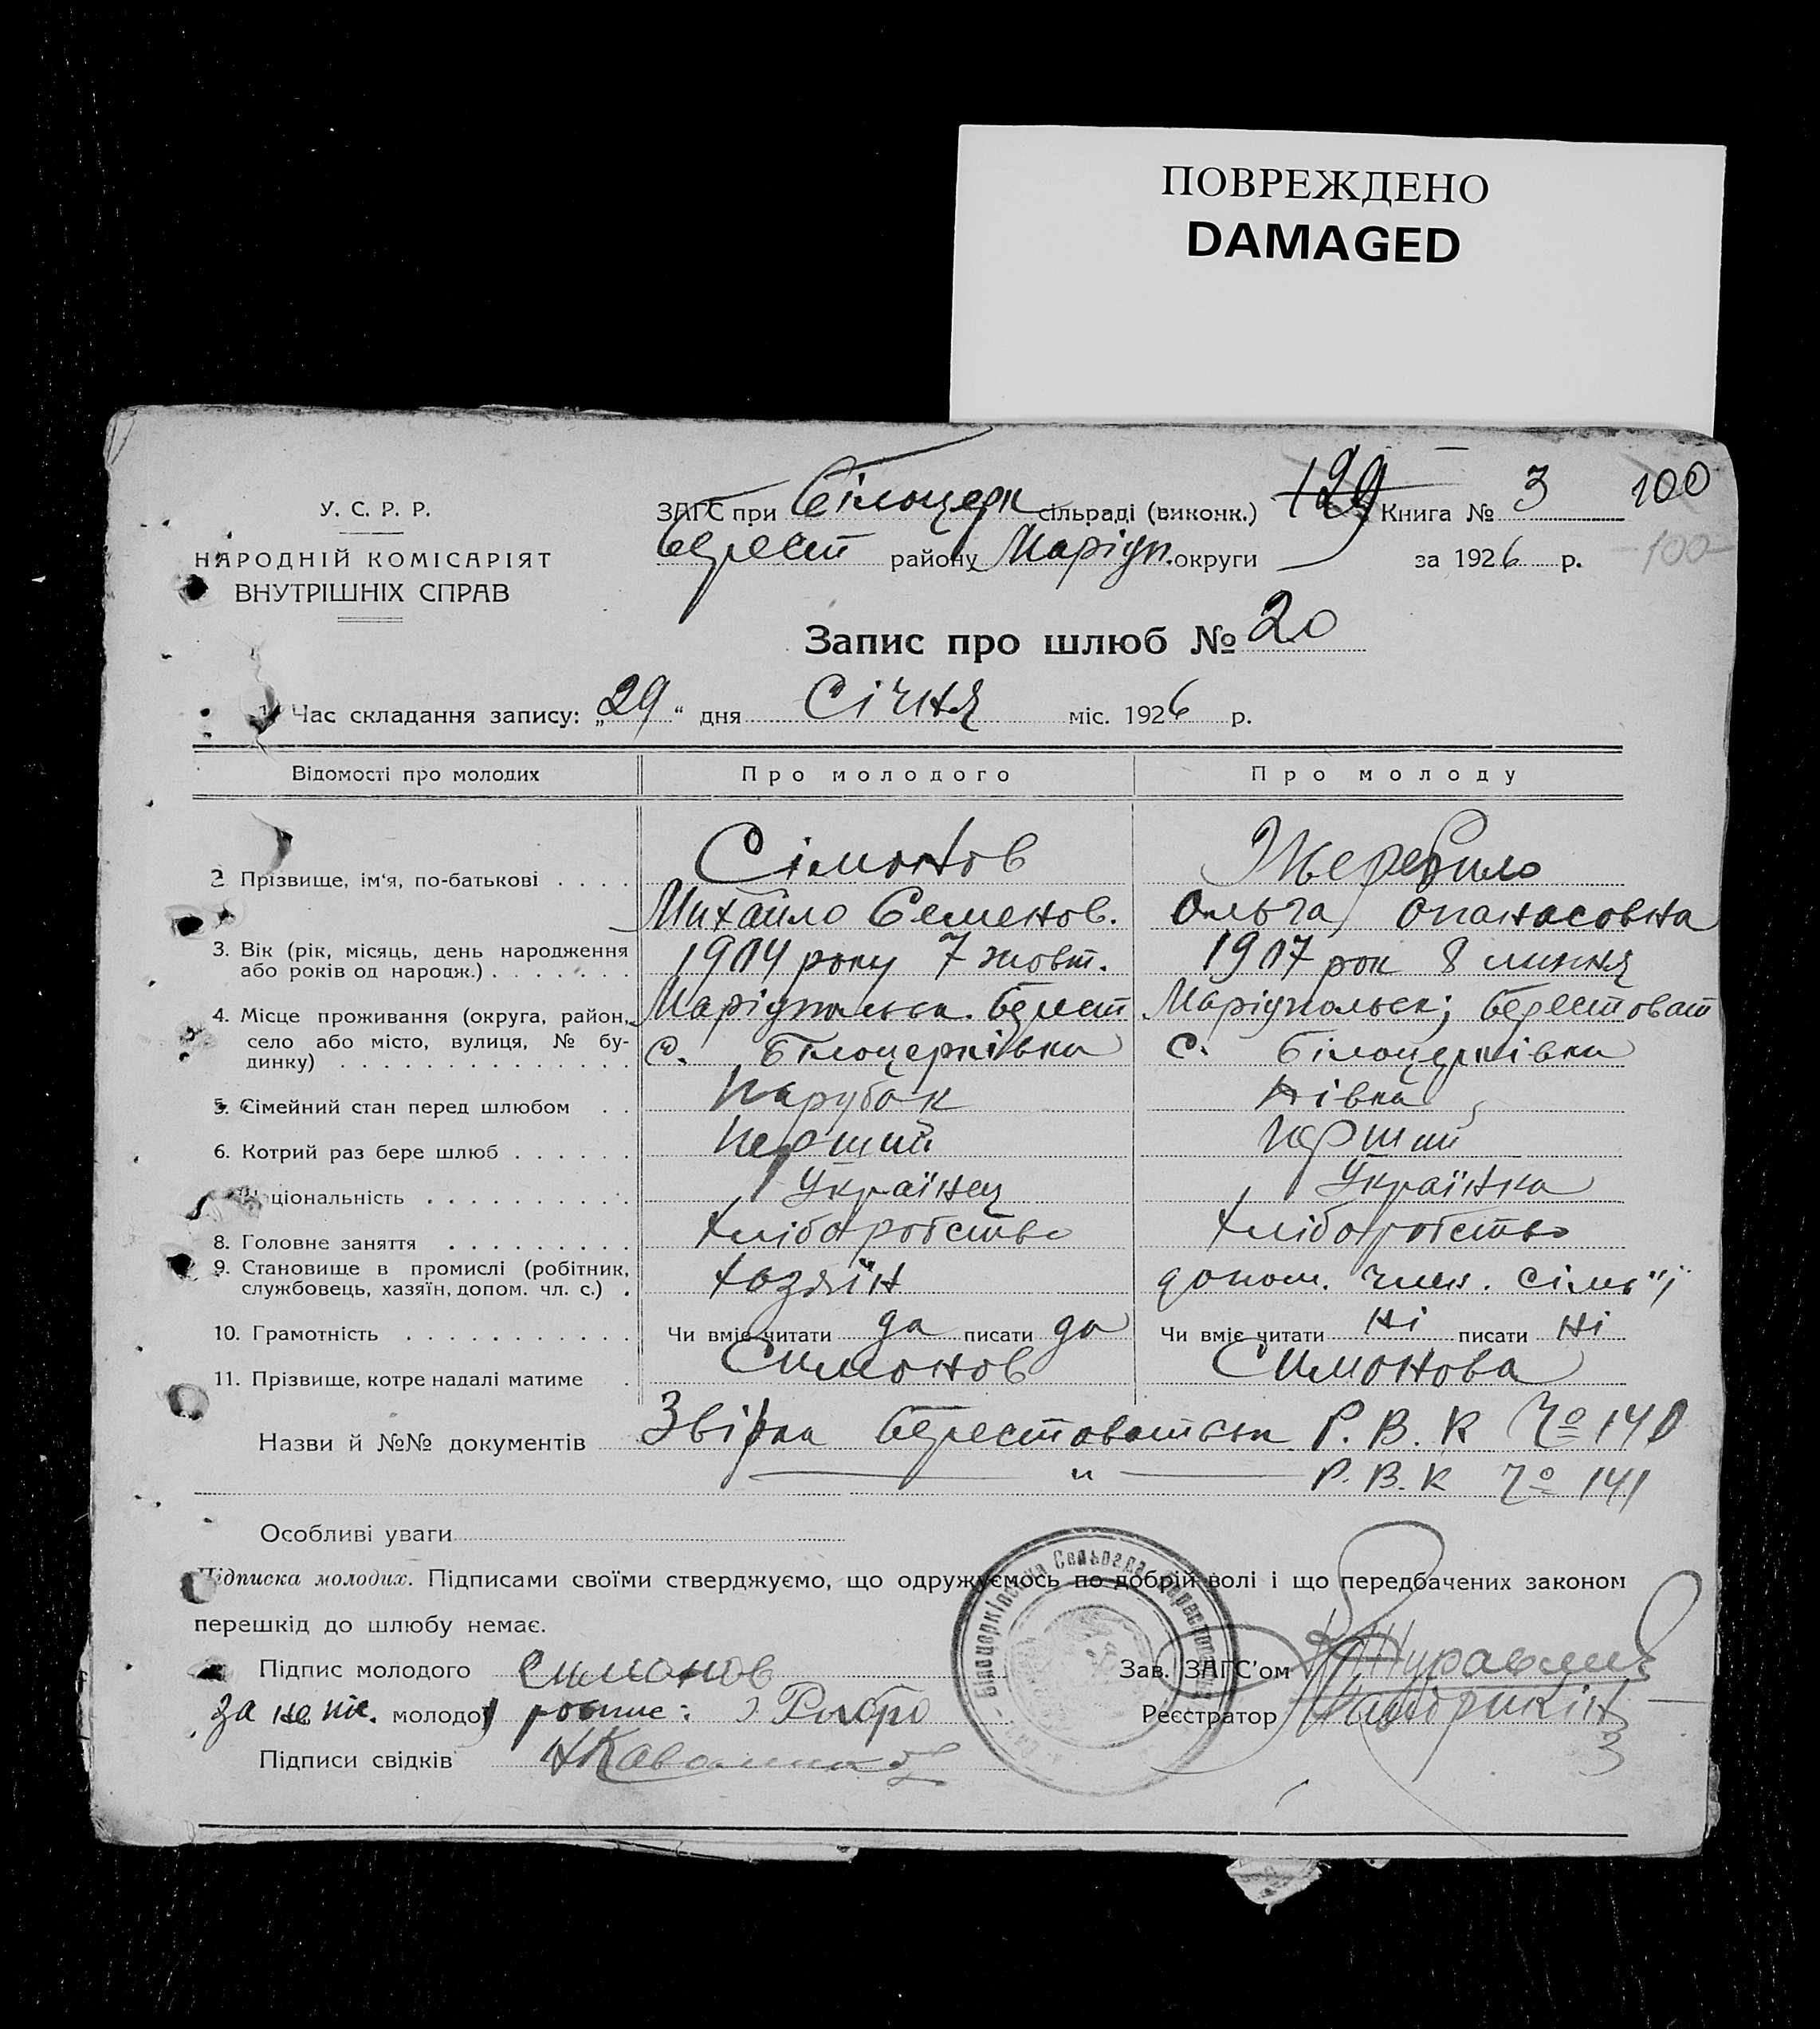 ПОВРЕЖДЕНО
DAMAGED
У. С. Р. Р.
НАРОДНІЙ КОМІСАРІЯТ
ВНУТРІШНІХ СПРАВ
ЗАГС при Білоцерк сільраді (виконк.) 129 Книга № 3 100
Берест району Маріуп. округи за 1926 р. 100
Запис про шлюб № 20
Час складання запису: „29“ дня Січня міс. 1926 р.
Відомості про молодих Про молодого Про молоду
2 Прізвище, ім'я, по-батькові . . . . Сімонов Жеребило
Михайло Семенов. Ольга Опанасовна
3. Вік (рік, місяць, день народження або років од народж.) . . . . . . . 1904 року 7 жовт. 1907 рок 8 липня
4. Місце проживання (округа, район, Маріупольськ. Берест Маріупольск; Берестоват
село або місто, вулиця, № будинку) . . . . . . . . . . . . . . с. Білоцерківка с. Білоцерківка
5. Сімейний стан перед шлюбом . . Парубок Дівка
6. Котрий раз бере шлюб . . . . . . Перший Перший
Національність . . . . . . . . . . Українец Українка
8. Головне заняття . . . . . . . . . Хліборобство Хліборобство
9. Становище в промислі (робітник, службовець, хазяїн, допом. чл. с.) . Хозяїн допом. член. сімьї
10. Грамотність . . . . . . . . . . . Чи вміє читати да писати да Чи вміє читати ні писати ні
11. Прізвище, котре надалі матиме . Симонов Симонова
Назви й №№ документів Звірка Берестоватськ Р. В. К № 140
" Р. В. К № 141
Особливі уваги
Підписка молодих. Підписами своїми стверджуємо, що одружуємось по добрій волі і що передбачених законом
перешкід до шлюбу немає.
Підпис молодого Симонов Зав. ЗАГС'ом Журавлив
за не пис. молоду роспис: Реєстратор
Підписи свідків
Білоцерківська Сельрада